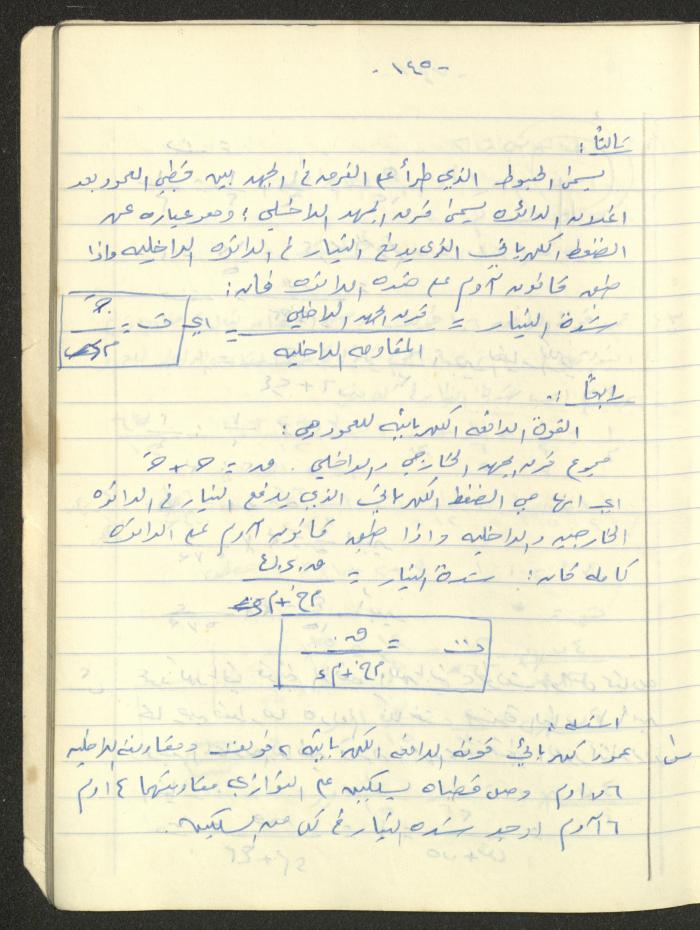 -١٤٥-
ثالثاً:
يسمى الهبوط الذي طرأ على الفرق في الجهد بين قطبي العمود بعد
اغلاق الدائره يسمى فرق الجهد الداخلي؛ وهو عباره عن
الضغط الكهربائي الذي يدفع التيار في الدائره الداخليه واذا
طبق قانون آوم على هذه الدائره فان:
شدة التيار = فرق الجهد الداخلي / المقاومه الداخليه = اي ت =
رابعاً:
القوة الدافعه الكهربائيه للعمود هي:
مجموع فرق الجهد الخارجي والداخلي. ق.د = جـ + جـَ
اي انها هي الضغط الكهربائي الذي يدفع التيار في الدائره
الخارجيه والداخليه واذا طبق قانون آوم على الدائره
كامله فان: شدة التيار = ق.د.ك / م خ + م د
ت = ق. / م خ + م د
اسئله:
س١ عمود كهربائي قوته الدافعه الكهربائيه ٢ فولت ومقاومته الداخليه
٧٦ اوم وصل قطباه بسلكين على التوازي مقاومتهما ٤ اوم
٦ آوم اوجد شده التيار في كل من السلكين.